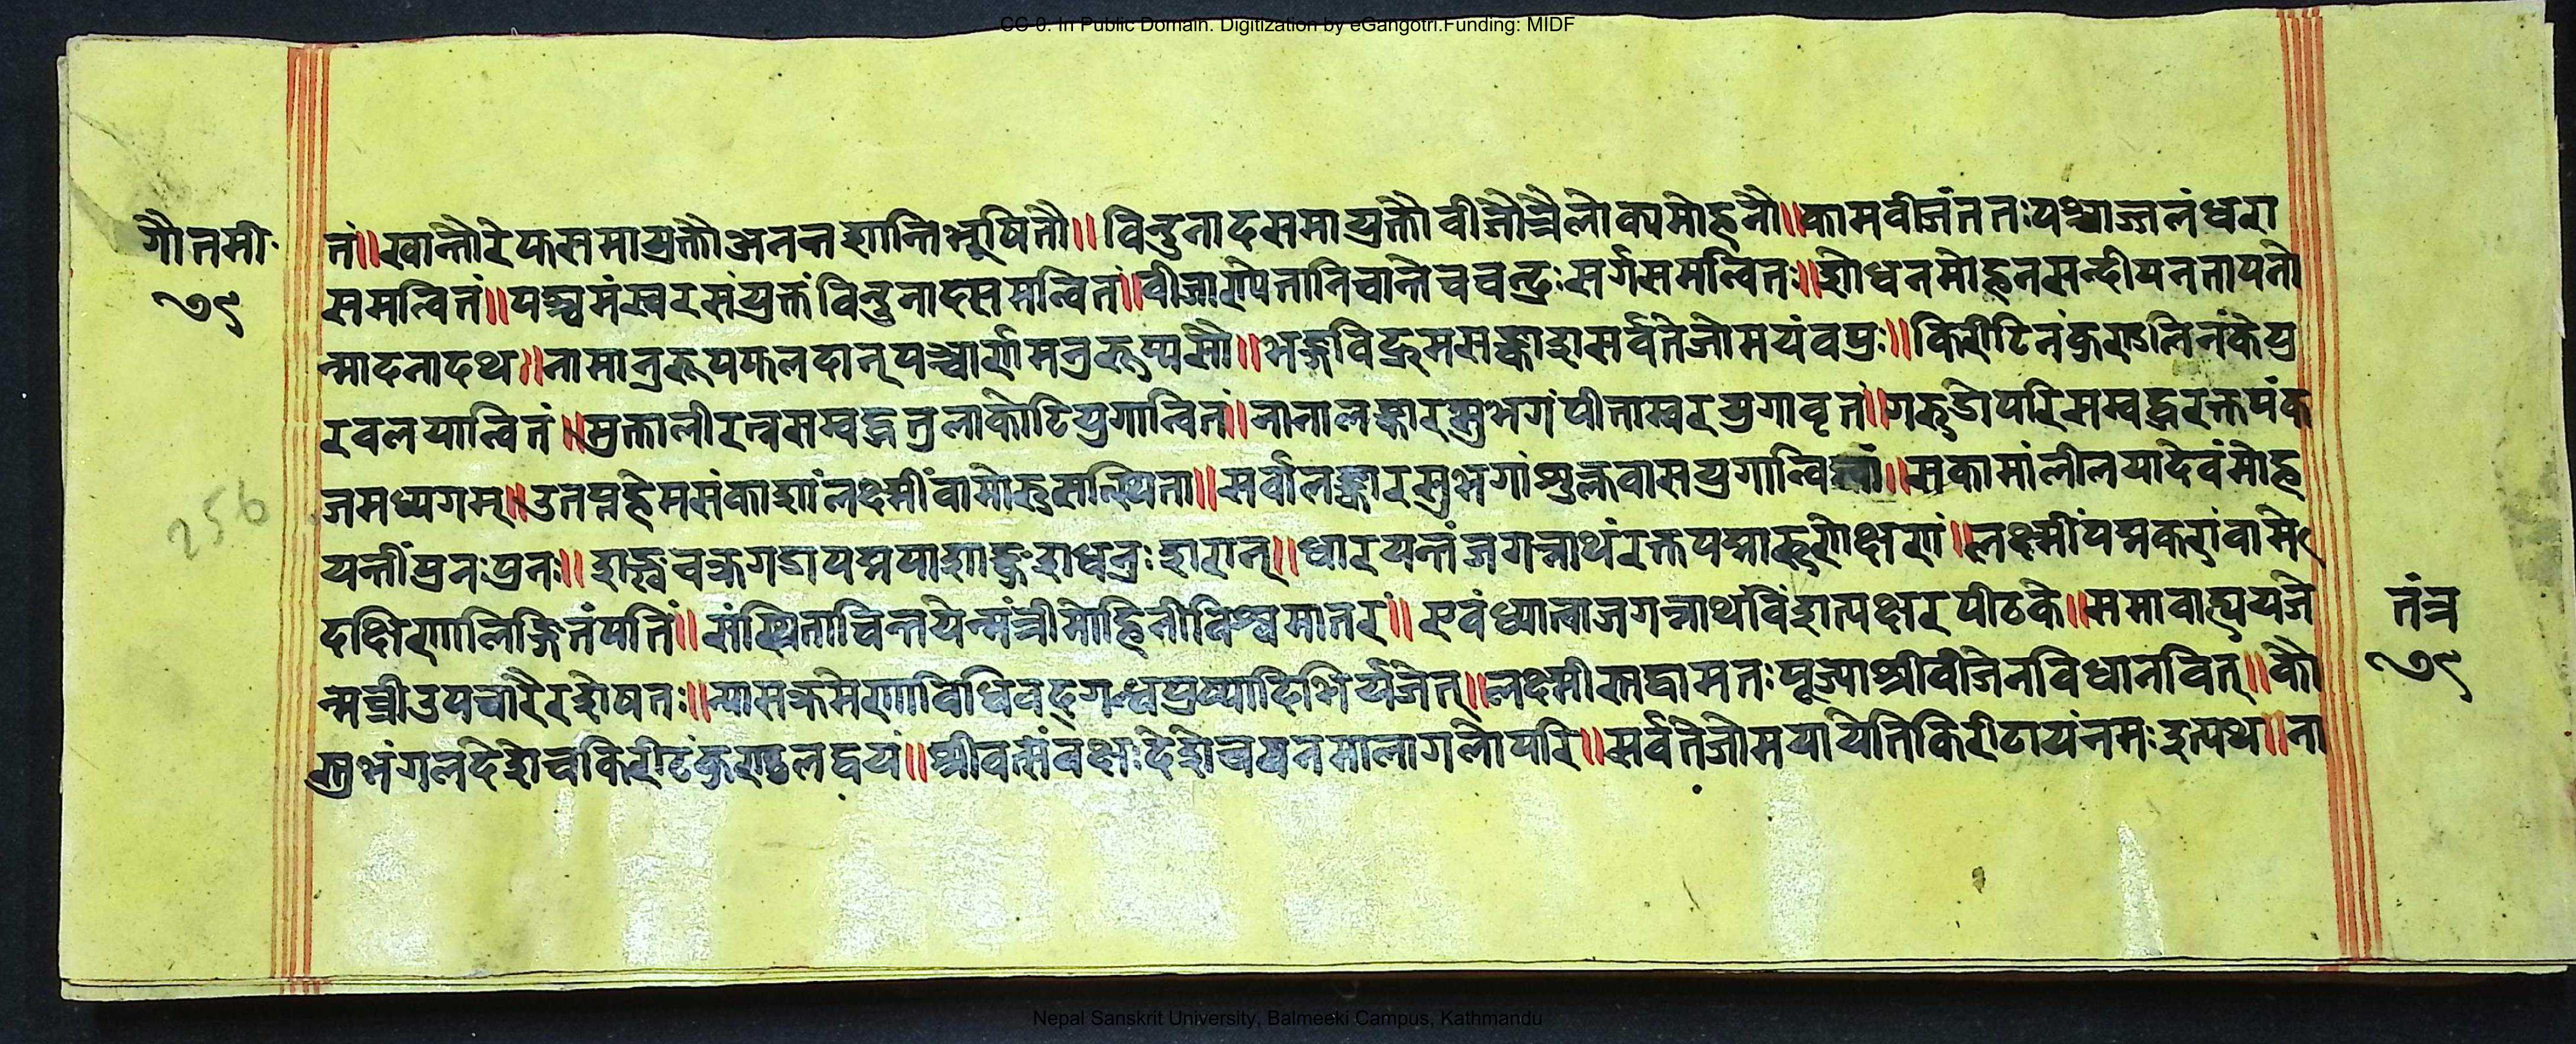 CC-0. In Public Domain. Digitization by eGangotri.Funding: MIDF
गौतमी
७९
तं॥खान्तौरेफसमायुक्तौअनन्तशान्तिभूषितौ॥विन्दुनादसमायुक्तौवीजौत्रैलोक्यमोहनौ॥कामवीजंततःपश्चाज्जलंधरा
समन्वितं॥पञ्चमंस्वरसंयुक्तंविन्दुनादसमन्वितं॥वीजाण्येतानिचान्तेचचन्द्रःसर्गसमन्वितः॥शोधनमोहनसन्दीयनतायनो
न्मादनादथ॥नामानुरूपफलदान्पञ्चार्णमनुरूप्यसौ॥भङ्गविद्रुमसङ्काशसर्वतेजोमयंवपुः॥किरीटिनंकुण्डलिनंकेयु
रवलयान्वितं॥मुक्तालीरत्नसम्वद्धतुलाकोटियुगान्वितं॥नानालङ्कारसुभगंपीताम्वरयुगावृतं॥गरुडोपरिसम्वद्धरक्तपंक
जमध्यगम्॥उतप्तहेमसंकाशांलक्ष्मींवामोरुसंस्थिता॥सर्वालङ्कारसुभगांशुक्लवासयुगान्वितां॥सकामांलीलयादेवंमोह
यन्तींपुनःपुनः॥शङ्खचक्रगडापद्मपाशाङ्कुशधनुःशरान्॥धारयन्तंजगन्नाथंरक्तपद्मारुणेक्षणं॥लक्ष्मींपद्मकरांवामे
दक्षिणालिङ्गितंपतिं॥संस्थिताचिन्तयेन्मंत्रीमोहिनीविश्वमातरं॥एवंध्यात्वाजगन्नाथंविंशत्यक्षरपीठके॥समावाह्ययजे
न्मन्त्रीउपचारैरशेषतः॥न्यासक्रमेणविधिवद्गन्धपुष्पादिभिर्यजेत्॥लक्ष्मीमादावामतःपूज्याश्रीवीजेनविधानवित्॥कौ
स्तुभंगलदेशेचकिरीटंकुण्डलद्वयं॥श्रीवत्संवक्षःदेशेचवनमालागलोपरि॥सर्वतेजोमयायेतिकिरीटायंनमःइत्यथ॥ना
256
तंत्र
७९
Nepal Sanskrit University, Balmeeki Campus, Kathmandu